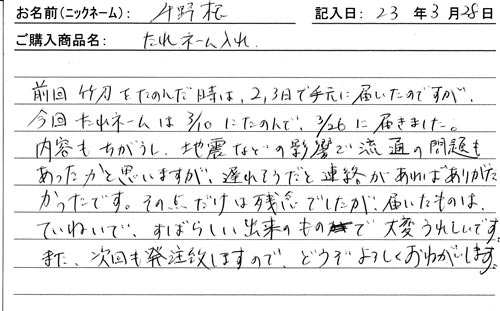 お名前(ニックネーム): 牛野松 記入日: 23 年 3 月 28 日
ご購入商品名: たれネーム入れ.
前回 竹刀をたのんだ時は、2,3日で手元に届いたのですが、
今回 たれネームは 3/10 にたのんで、3/26 に届きました。
内容も ちがうし、地震などの影響で 流通の問題も
あったかと思いますが、遅れそうだと 連絡があればありがた
かったです。その点だけは残念でしたが、届いたものは、
ていねいで、すばらしい出来のもので 大変うれしいです。
また、次回も発注致しますので、どうぞよろしくおねがいします。